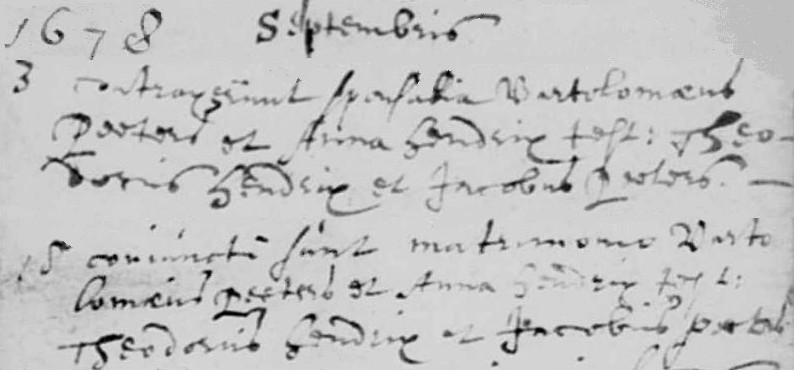 1678 Septembris
3 contraxerunt sponsalia Bartolomæus
Peeters et Anna Hendrix test: Theo-
dorus Hendrix et Jacobus Peeters. —
18 coniuncti sunt matrimonio Barto
lomæus Peeters et Anna Hendrix test:
Theodorus Hendrix et Jacobus Peeters